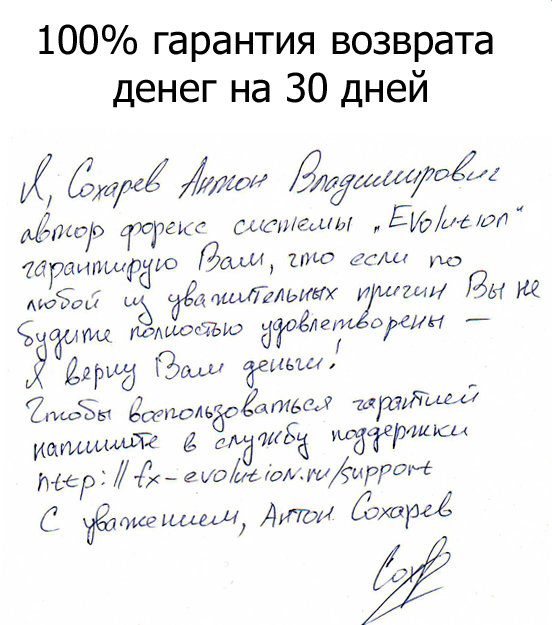 100% гарантия возврата
денег на 30 дней
Я, Сохарев Антон Владимирович
автор форекс системы „Evolution“
гарантирую Вам, что если по
любой из уважительных причин Вы не
будите полностью удовлетворены —
Я верну Вам деньги!
Чтобы воспользоваться гарантией
напишите в службу поддержки
http://fx-evolution.ru/support
С уважением, Антон Сохарев
Сох